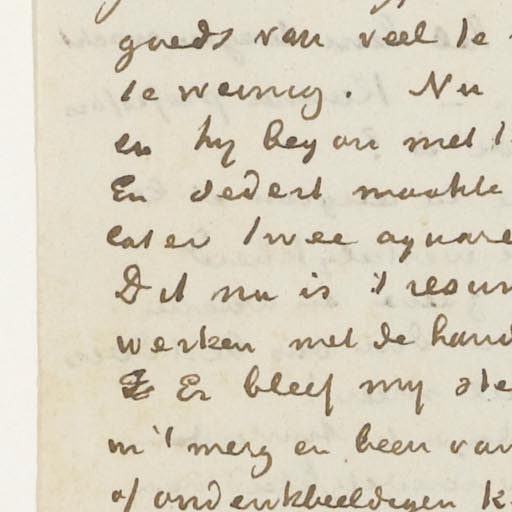 goeds van veel te
te weinig. Nu
en hy begon met
En sedert maakte
later twee aquare
Dit nu is 't resum
werken met de hand
Er bleef my ste
in 't merg en been van
of ondenkbeeldigen k